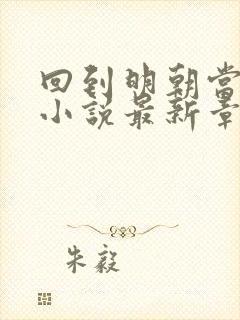 回到明朝当
小说最新章
朱毅